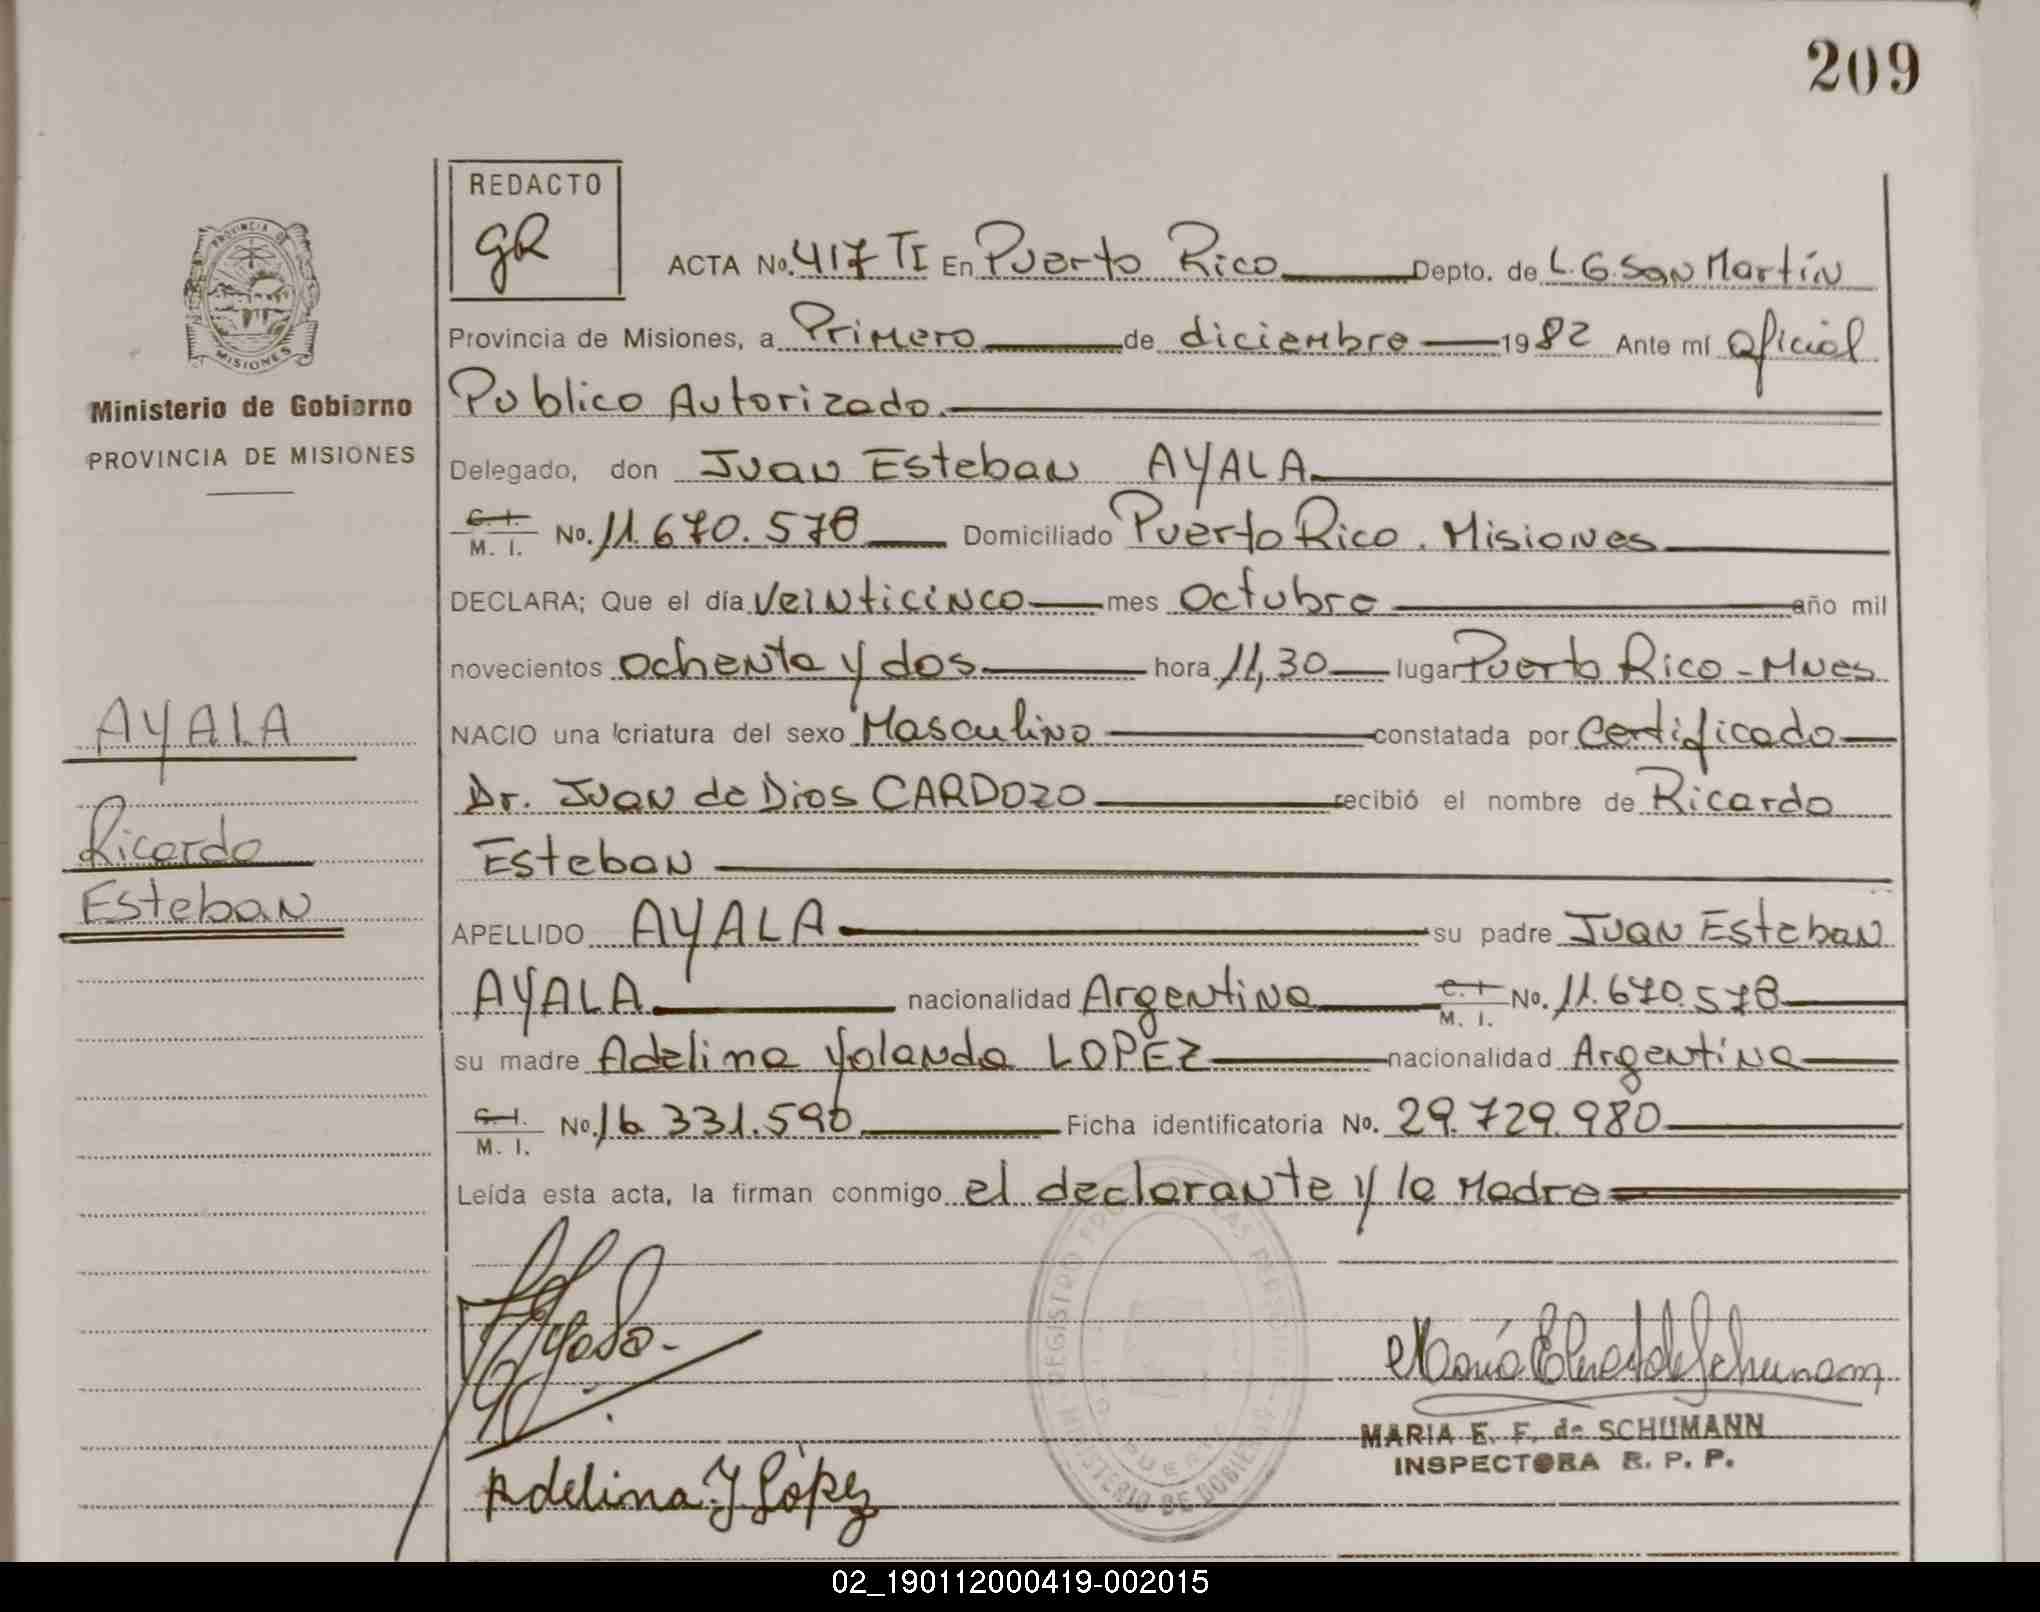 209
REDACTO
gR
ACTA No. 417 TI En Puerto Rico Depto. de L. G. San Martín
Provincia de Misiones, a Primero de diciembre 1982 Ante mí Oficial
Publico Autorizado.
Delegado, don Juan Esteban AYALA
C. I. M. I. No. 11.670.578 Domiciliado Puerto Rico. Misiones
DECLARA; Que el día veinticinco mes Octubre año mil
novecientos ochenta y dos hora 11,30 lugar Puerto Rico - Mnes
NACIO una criatura del sexo Masculino constatada por Certificado
Dr. Juan de Dios CARDOZO recibió el nombre de Ricardo
Esteban
APELLIDO AYALA su padre Juan Esteban
AYALA nacionalidad Argentina C. I. M. I. No. 11.670.578
su madre Adelina Yolanda LOPEZ nacionalidad Argentina
C. I. M. I. No. 16 331.590 Ficha identificatoria No. 29.729.980
Leída esta acta, la firman conmigo el declarante y la Madre
PROVINCIA DE
MISIONES
Ministerio de Gobierno
PROVINCIA DE MISIONES
AYALA
Ricardo
Esteban
Adelina Y López
MARIA E. F. de SCHUMANN
INSPECTORA R. P. P.
REGISTRO
MINISTERIO DE GOBIERNO
02_190112000419-002015